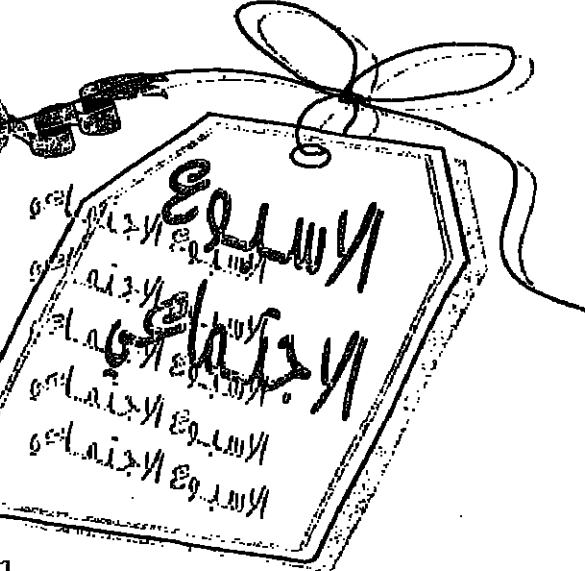 الاسبوع
الاجتماعي
الاسبوع الاجتماعي
الاسبوع الاجتماعي
الاسبوع الاجتماعي
الاسبوع الاجتماعي
الاسبوع الاجتماعي